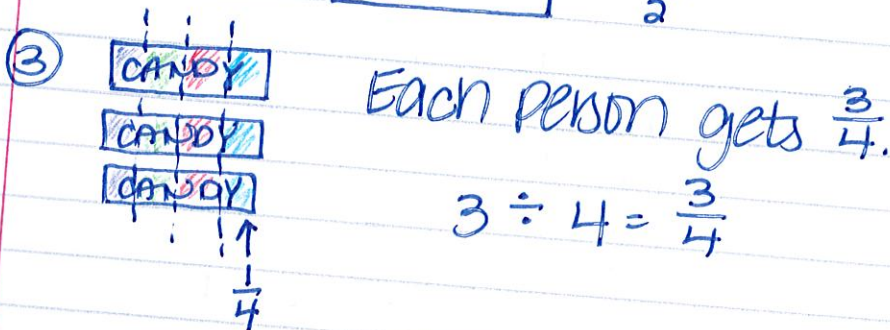 2
③
CANDY
CANDY
CANDY
Each person gets 3/4.
3 ÷ 4 = 3/4
1/4